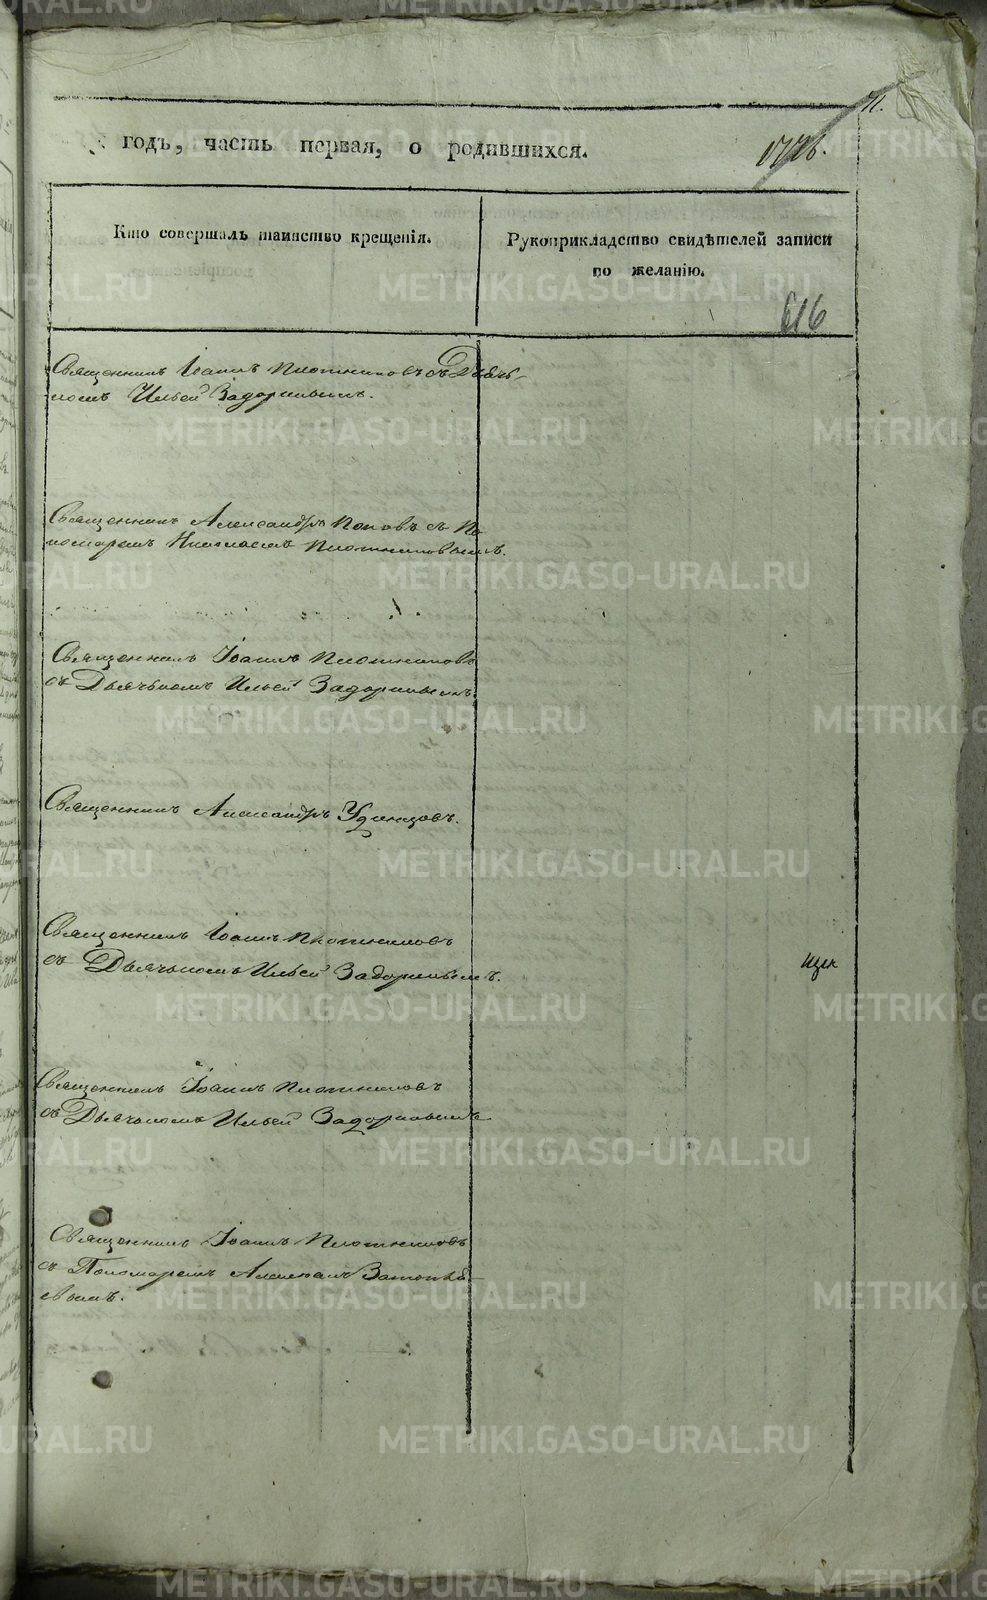 годъ, часть первая, о родившихся.
Кто совершалъ таинство крещенія.
Рукоприкладство свидѣтелей записи
по желанію.
616
Священникъ Іоаннъ Плотниковъ съ Дьячь-
комъ Ильей Задоринымъ.
Священникъ Александръ Поповъ съ По
номаремъ Николаемъ Плотниковымъ.
Священникъ Іоаннъ Плотниковъ
съ Дьячькомъ Ильей Задоринымъ.
Священникъ Александръ Удинцовъ.
Священникъ Іоаннъ Плотниковъ
съ Дьячькомъ Ильей Задоринымъ.
Священникъ Іоаннъ Плотниковъ
съ Дьячькомъ Ильей Задоринымъ
Священникъ Іоаннъ Плотниковъ
съ Пономаремъ
METRIKI.GASO-URAL.RU